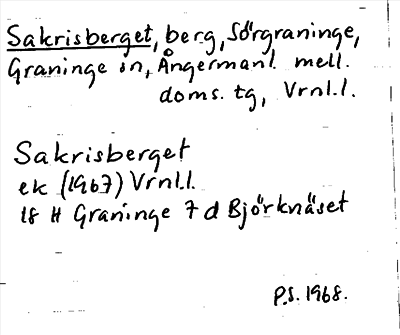 Sakrisberget, berg, Sörgraninge,
Graninge sn, Ångermanl. mell.
doms. tg, Vrnl.l.
Sakrisberget
ek (1967) Vrnl.l.
18 H Graninge 7 d Björknäset
P.S. 1968.